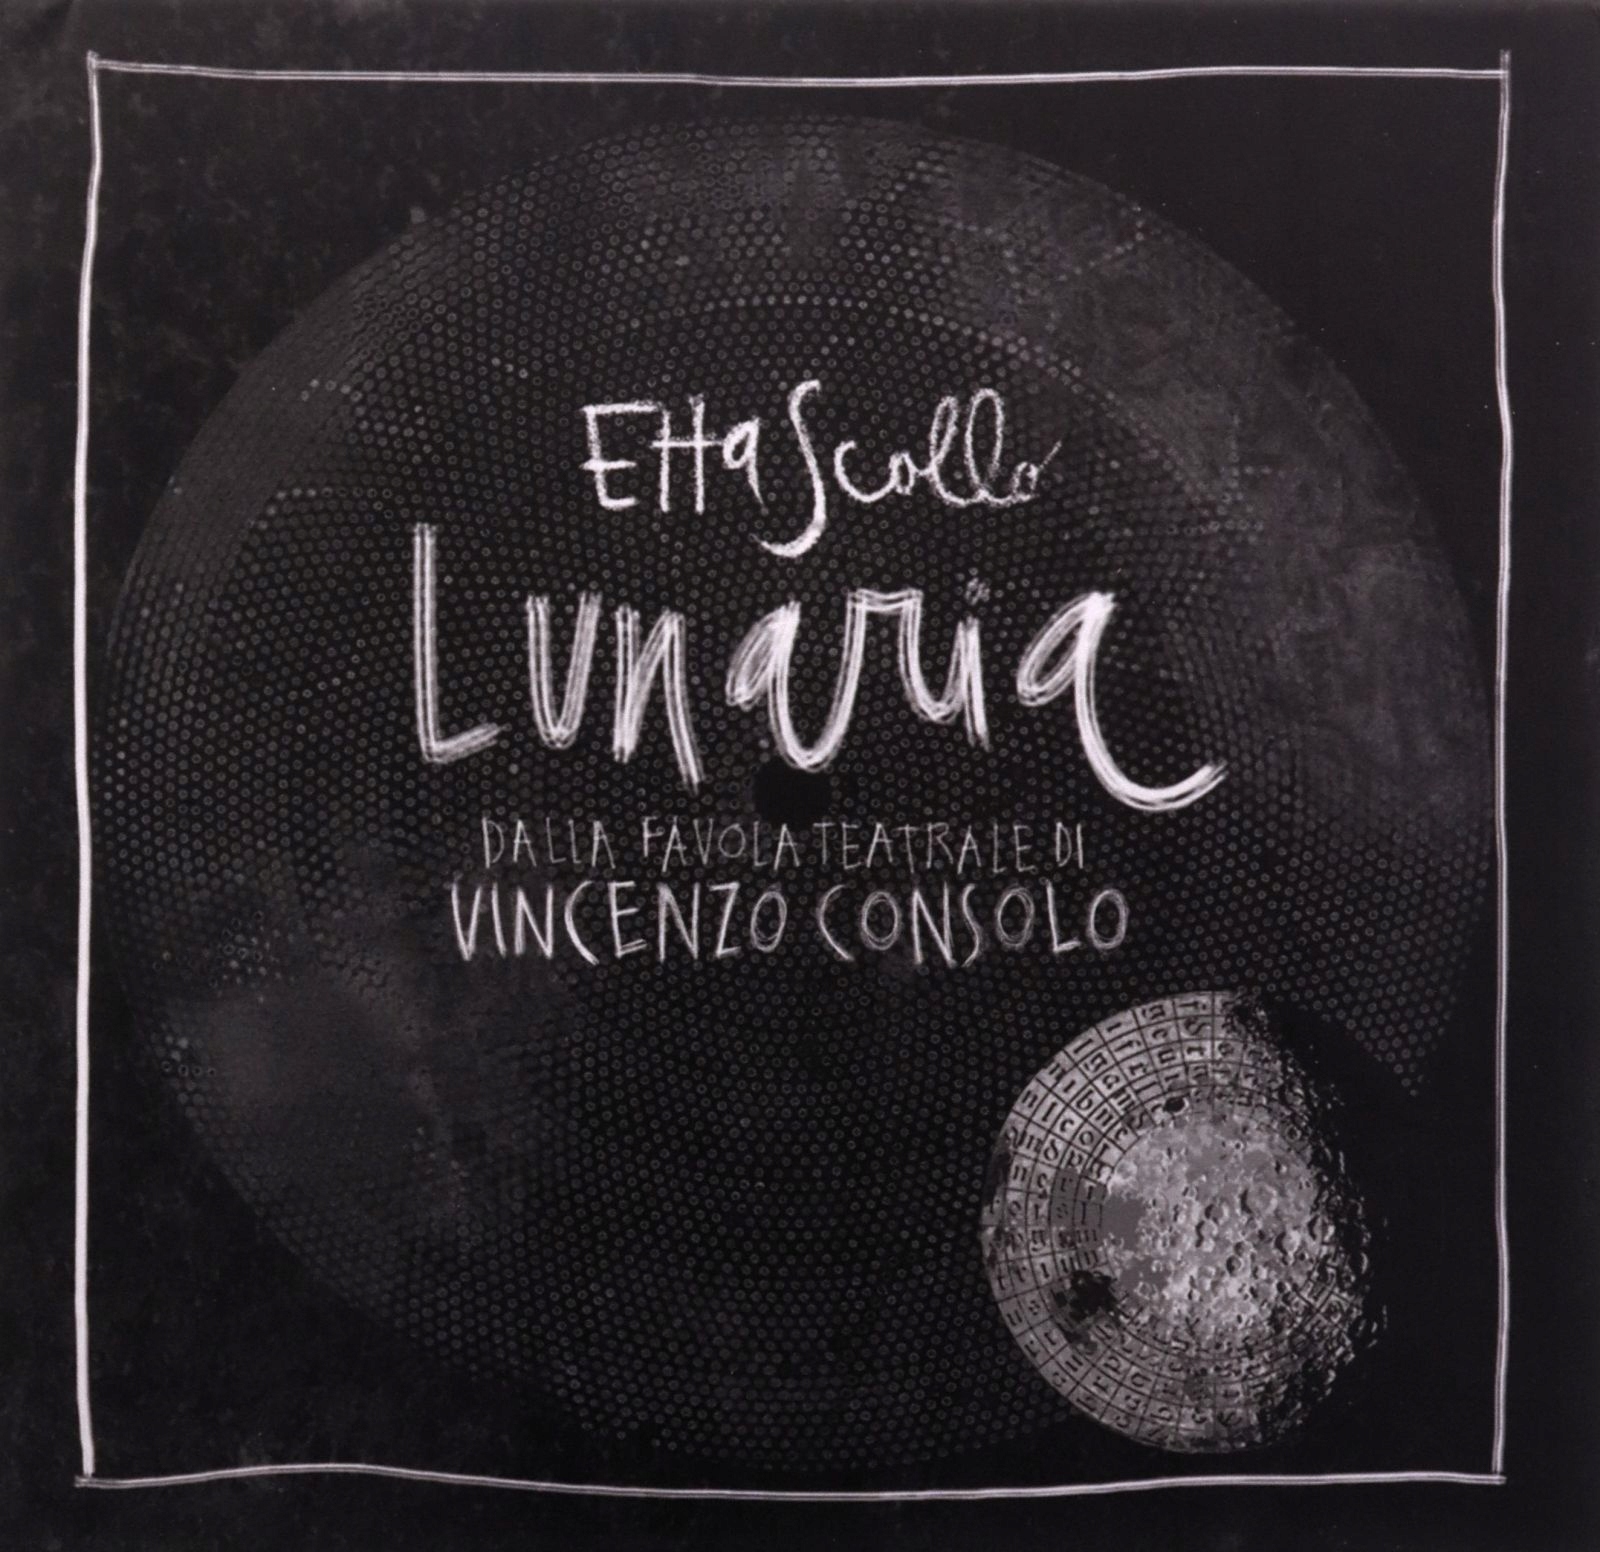 Etta Scollo
Lunaria
DALLA FAVOLA TEATRALE DI
VINCENZO CONSOLO